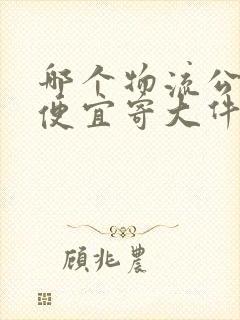 哪个物流公
便宜寄大件
顾兆农